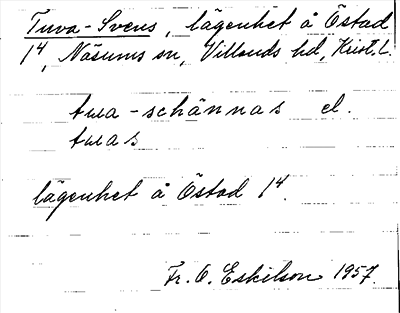 Tuva-Svens, lägenhet å Östad
1⁴, Näsums sn, Villands hd, Krist. L.
lägenhet å Östad 1⁴.
Fr. O. Eskilson 1957.